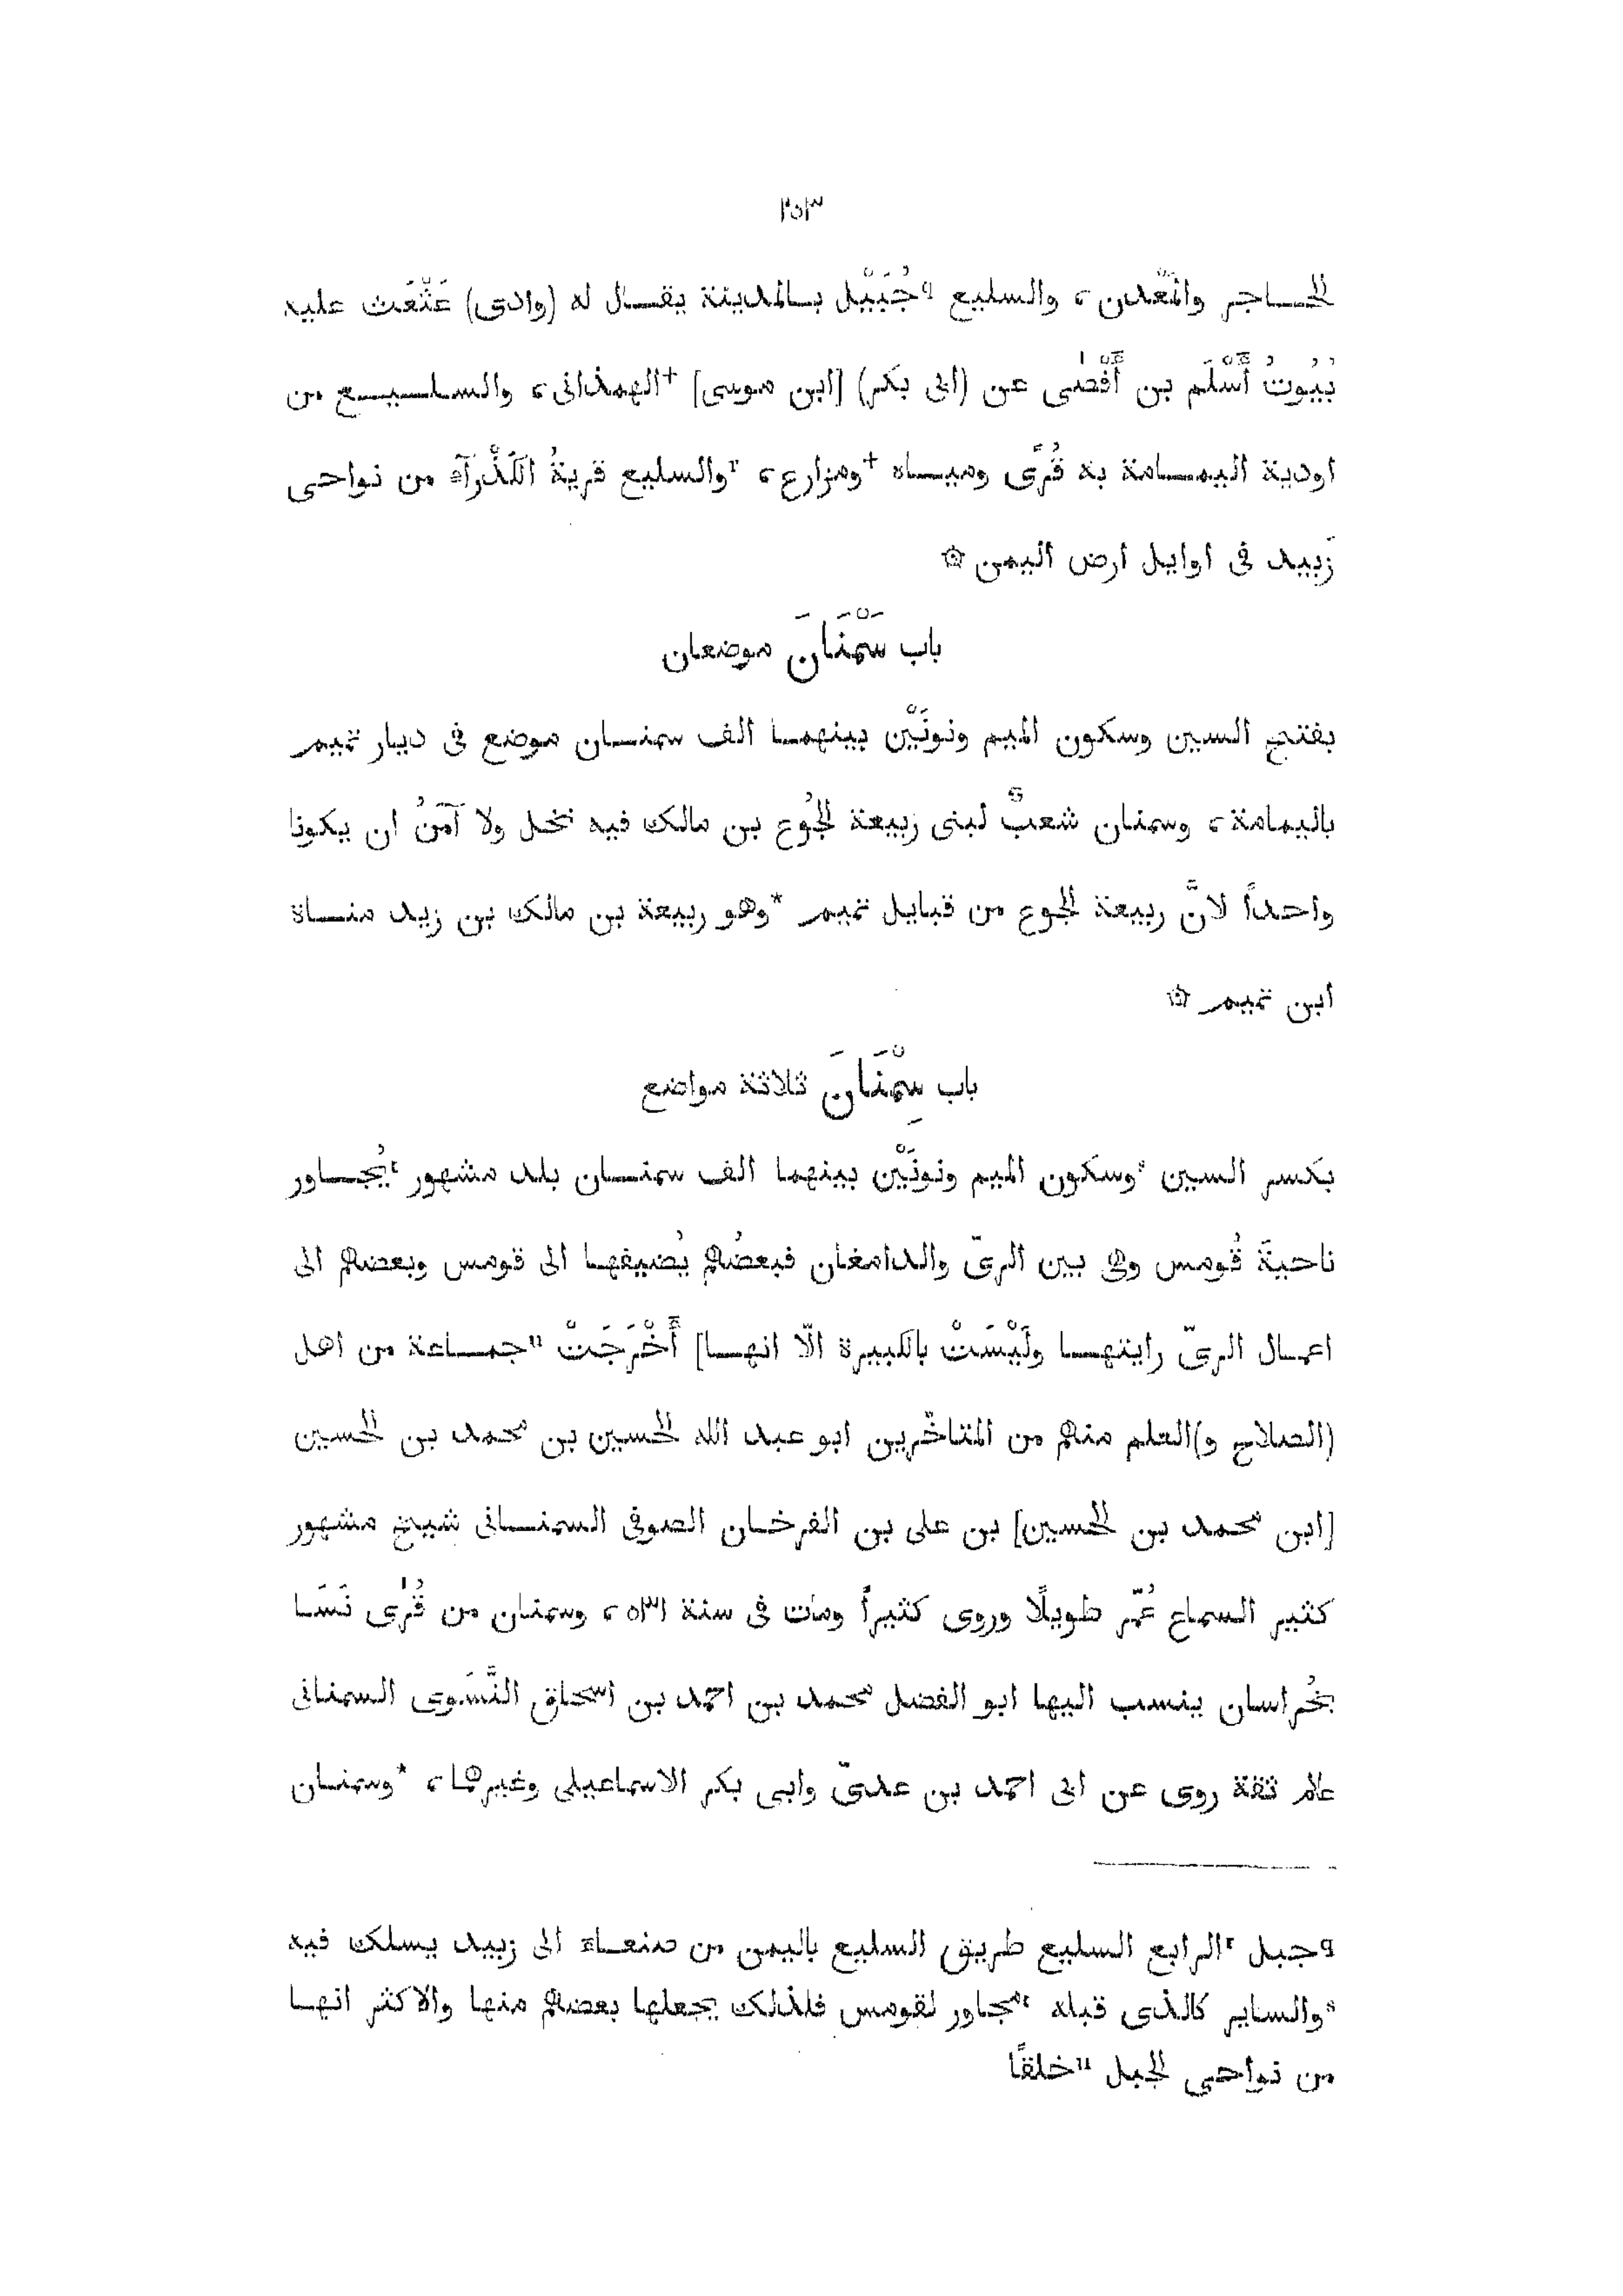 ٢٥٣
الحاجر والمَعْدن، والسليع qجُبَيْل بالمدينة يقال له (وادى) عَثْعَث عليه
بُيُوتُ أَسْلَم بن أَفْصٰى عن (ابى بكر) [ابن موسى] +الهمذانى، والسليع من
اودية اليمامة به قُرًى ومياه +ومزارع، rوالسليع قريةُ الكَدْرَآء من نواحى
زَبيد فى اوايل ارض اليمن ۞
باب سَمْنَانَ موضعان
بفتح السين وسكون الميم ونونَيْن بينهما الف سمنان موضع فى ديار تميم
باليمامة، وسمنان شعبٌ لبنى ربيعة الجُوع بن مالك فيه نخل ولا آمَنُ ان يكونا
واحداً لانَّ ربيعة الجوع من قبايل تميم *وهو ربيعة بن مالك بن زيد مناة
ابن تميم ۞
باب سِمْنَانَ ثلاثة مواضع
بكسر السين sوسكون الميم ونونَيْن بينهما الف سمنان بلد مشهور tيُجاور
ناحيةَ قُومس وهى بين الرىّ والدامغان فبعضُهم يُضيفها الى قومس وبعضهم الى
اعمال الرىّ رايتها ولَيْسَتْ بالكبيرة الّا انها] أَخْرَجَتْ uجماعة من اهل
(الصلاح و)العلم منهم من المتاخّرين ابو عبد الله الحسين بن محمد بن الحسين
[ابن محمد بن الحسين] بن على بن الفرخان الصوفى السمنانى شيخ مشهور
كثير السماع عُمّر طويلًا وروى كثيراً ومات فى سنة ٥٣١، وسمنان من قُرٰى نَسَا
بخُراسان ينسب اليها ابو الفضل محمد بن احمد بن اسحاق النَّسَوى السمنانى
عالم ثقة روى عن ابى احمد بن عدىّ وابى بكر الاسماعيلى وغيرهما، *وسمنان
qجبل rالرابع السليع طريق السليع باليمن من صنعاء الى زبيد يسلك فيه
sوالساير كالذى قبله tمجاور لقومس فلذلك يجعلها بعضهم منها والاكثر انها
من نواحى الجبل uخلقًا